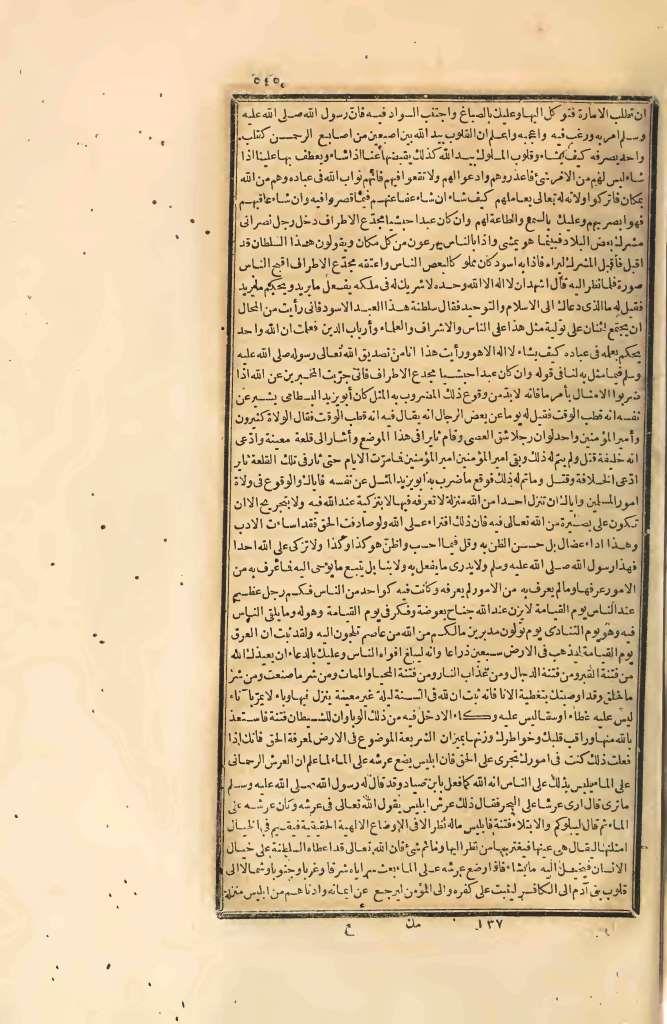 ٥٤٥
ان تطلب الامارة فتوكل اليها وعليك بالصباغ واجتنب السواد فيه فان رسول الله صلى الله عليه
وسلم امر به ورغب فيه واعجبه واعلم ان القلوب بيد الله بين اصبعين من اصابع الرحمن كقلب
واحد يصرفه كيف يشاء وقلوب الملوك بيد الله كذلك يقبضها عنا اذا شاء ويعطف بها علينا اذا
شاء ليس لهم من الامر شئ فاعذروهم وادعوا لهم ولا تقعوا فيهم فانهم نواب الله فى عباده وهم من الله
بمكان فاتركوا ولاته له تعالى يعاملهم كيف شاء ان شاء عفا عنهم فيما قصروا فيه وان شاء عاقبهم
فهو ابصر بهم وعليك بالسمع والطاعة لهم وان كان عبدا حبشيا مجدّع الاطراف دخل رجل نصرانى
مشرك بعض البلاد فبينما هو يمشى واذا بالناس يهرعون من كل مكان ويقولون هذا السلطان قد
اقبل فأقبل المشرك ليراه فاذا به اسود كان مملوكا لبعض الناس واعتقه مجدّع الاطراف اقبح الناس
صورة فلما نظر اليه قال اشهد ان لا اله الا الله وحده لا شريك له فى ملكه يفعل ما يريد ويحكم ما يريد
فقيل له ما الذى دعاك الى الاسلام والتوحيد فقال سلطنة هذا العبد الاسود فانى رأيت من المحال
ان يجتمع اثنان على تولية مثل هذا على الناس والاشراف والعلماء وأرباب الدين فعلمت ان الله واحد
يحكم بعلمه فى عباده كيف يشاء لا اله الا هو ورأيت هذا انا من تصديق الله تعالى رسوله صلى الله عليه
وسلم فيما مثل به لنا فى قوله وان كان عبدا حبشيا مجدع الاطراف فانى جرّبت المخبرين عن الله اذا
ضربوا الامثال بأمر ما فانه لابد من وقوع ذلك المضروب به المثل كان أبو يزيد البسطامى يشير عن
نفسه انه قطب الوقت فقيل له يوما عن بعض الرجال انه يقال فيه انه قطب الوقت فقال الولاة كثيرون
وأمير المؤمنين واحد لو ان رجلا شق العصى وقام ثايرا فى هذا الموضع وأشار الى قلعة معينة وادّعى
انه خليفة قتل ولم يتم له ذلك وبقى امير المؤمنين امير المؤمنين فما مرّت الايام حتى ثار فى تلك القلعة ثاير
ادّعى الخلافة وقتل وما تم له ذلك فوقع ما ضرب به ابو يزيد المثل عن نفسه فاياك والوقوع فى ولاة
امور المسلمين واياك ان تنزل احدا من الله منزلة لا تعرفه فيها لا بتزكية عند الله فيه ولا بتجريح الا ان
تكون على بصيرة من الله تعالى فيه فان ذلك افتراء على الله ولو صادفت الحق فقد اسأت الادب
وهذا داء عضال بل حسن الظن به وقل فيما احسب واظن هو كذا وكذا ولا تزكى على الله احدا
فهذا رسول الله صلى الله عليه وسلم ولا يدرى ما يفعل به ولا بنا بل يتبع ما يوحى اليه فما عرف به من
الامور عرفها وما لم يعرف به من الامور لم يعرفه وكانت فيه كواحد من الناس فكم رجل عظيم
عند الناس يوم القيامة لا يزن عند الله جناح بعوضة وفكر فى يوم القيامة وهوله وما يلقى الناس
فيه وهو يوم التنادى يوم تولون مدبرين ما لكم من الله من عاصم تلجون اليه ولقد ثبت ان العرق
يوم القيامة ليذهب فى الارض سبعين ذراعا وانه ليبلغ افواه الناس وعليك بالدعاء ان يعيذك الله
من فتنة القبر ومن فتنة الدجال ومن عذاب النار ومن فتنة المحيا والممات ومن شر ما صنعت ومن شر
ما خلق وقد اوصيتك بتغطية الانا فانه ثبت ان لله فى السنة ليلة غير معينة ينزل فيها وباء لا يمر باناء
ليس عليه غطاء او سقا ليس عليه وكاء الا دخل فيه من ذلك الوبا وان للشيطان فتنة فاستعذ
بالله منها وراقب قلبك وخواطرك وزنها بميزان الشريعة الموضوع فى الارض لمعرفة الحق فانك اذا
فعلت ذلك كنت فى امورك تجرى على الحق فان ابليس يضع عرشه على الماء لما علم ان العرش الرحمانى
على الماء يلبس بذلك على الناس انه الله كما فعل بابن صياد وقد قال له رسول الله صلى الله عليه وسلم
ما ترى قال ارى عرشا على البحر فقال ذلك عرش ابليس يقول الله تعالى فى عرشه وكان عرشه على
الماء ثم قال ليبلوكم والابتلاء فتنة فابليس ما له نظر الا فى الاوضاع الالهية الحقيقية فيقيم فى الخيال
امثلتها ليقال هى عينها فيغتر بها من نظر اليها وما ثم شئ فان الله تعالى قد اعطاه السلطنة على خيال
الانسان فيخيل اليه ما يشاء فاذا وضع عرشه على الماء بعث سراياه شرقا وغربا وجنوبا وشمالا الى
قلوب بنى آدم الى الكافر ليثبت على كفره والى المؤمن ليرجع عن ايمانه وادناهم من ابليس منزلة
١٣٧ مك ع